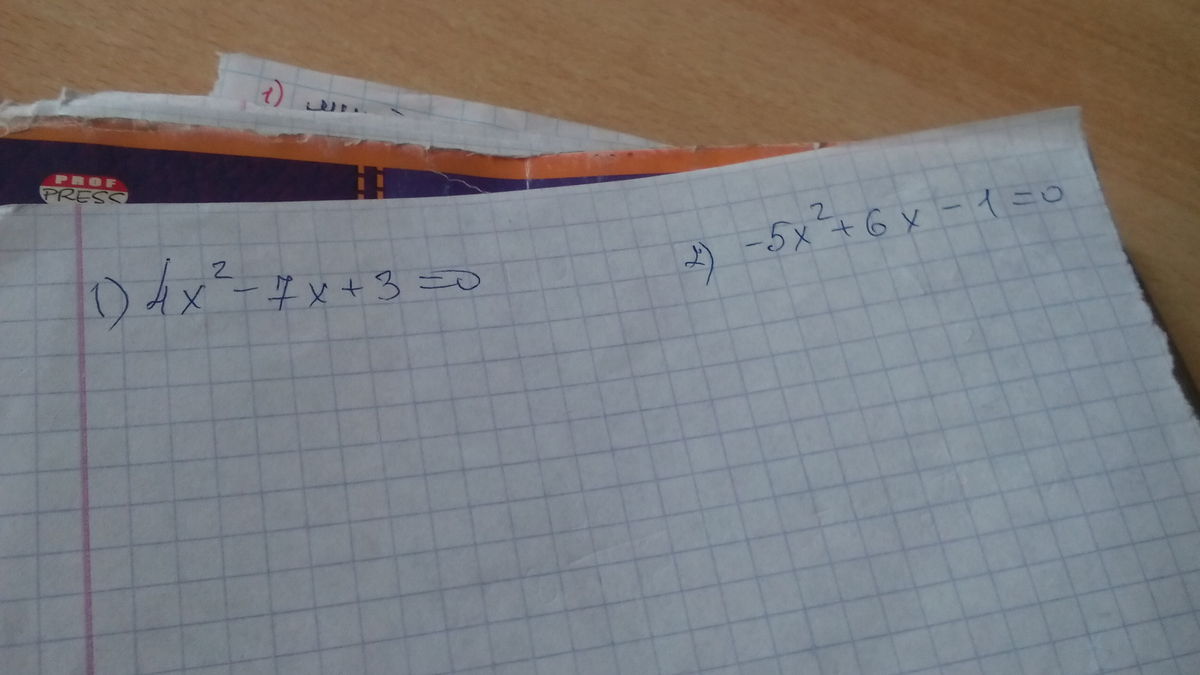 1)
PROF
PRESS
1) 4x² - 7x + 3 = 0
2) -5x² + 6x - 1 = 0